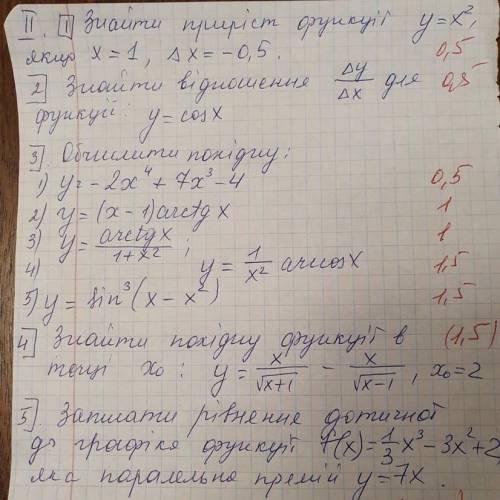 II. 1 Знайти приріст функції y = x²,
якщо x = 1, Δx = -0,5. 0,5
2 Знайти відношення Δy/Δx для 0,5
функції: y = cosx
3 Обчислити похідну:
1) y = -2x⁴ + 7x³ - 4 0,5
2) y = (x - 1) arctg x 1
3) y = arctgx/1+x² ; 1
4) y = 1/x² arccosx 1,5
5) y = sin³(x - x²) 1,5
4 Знайти похідну функції в (1,5)
точці x₀ : y = x/√x+1 - x/√x-1 , x₀ = 2
5 Записати рівняння дотичної
до графіка функції f(x) = 1/3 x³ - 3x² + 2
яка паралельна прямій y = 7x .